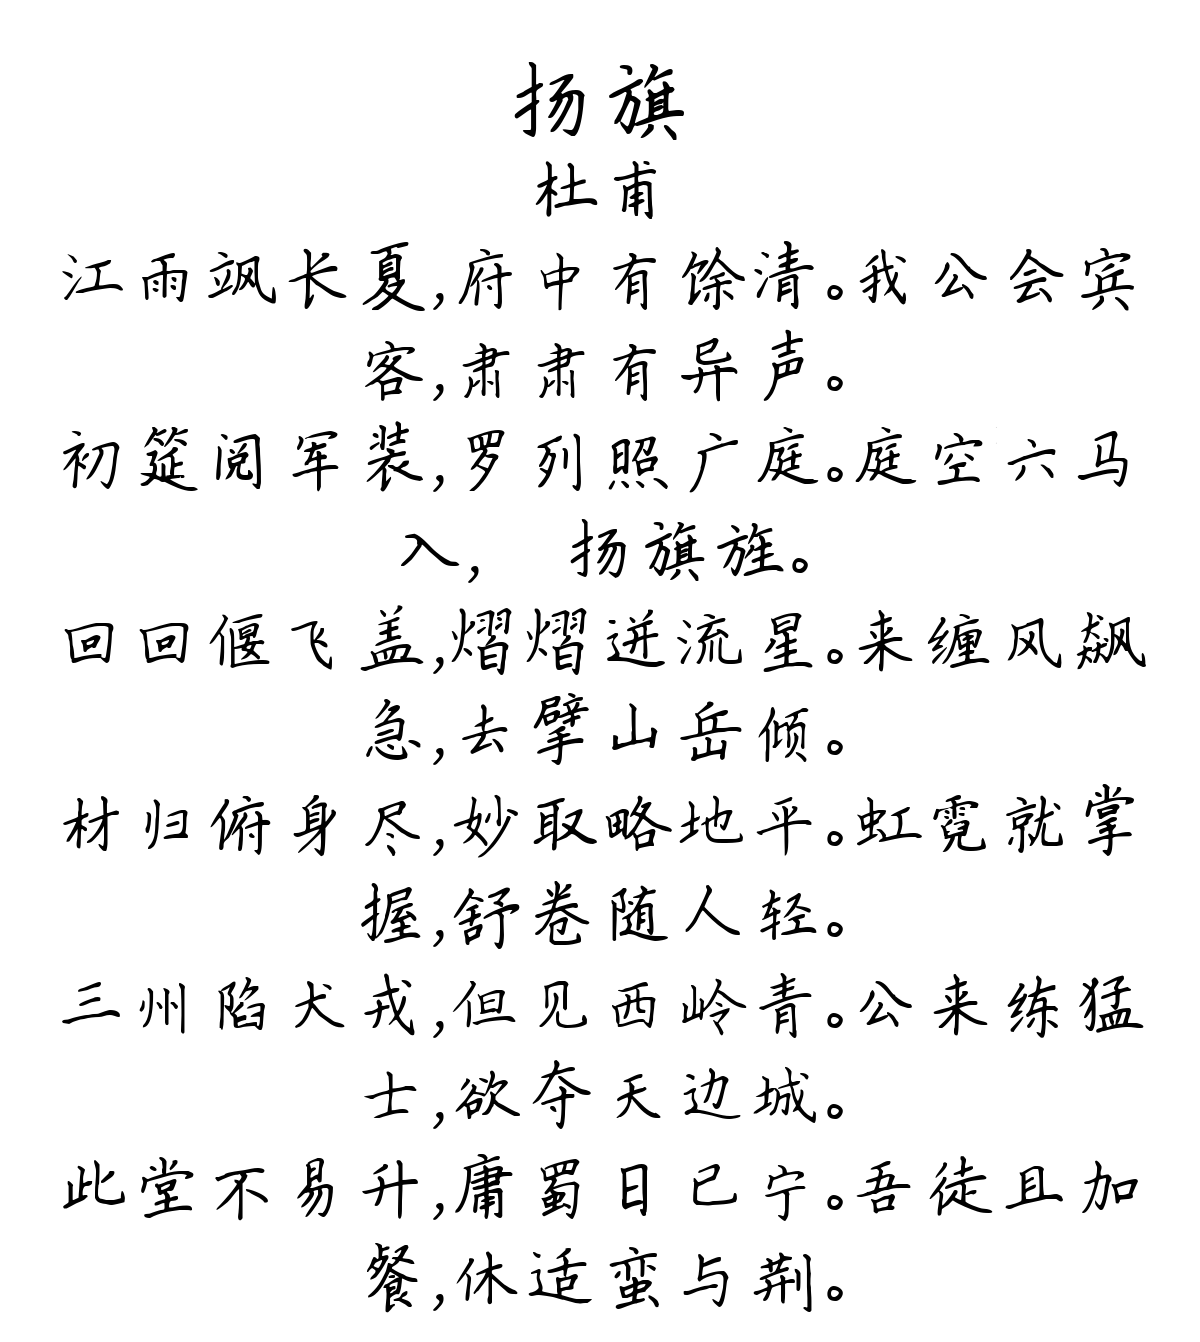 扬旗
杜甫
江雨飒长夏,府中有馀清。我公会宾
客,肃肃有异声。
初筵阅军装,罗列照广庭。庭空六马
入, 扬旗旌。
回回偃飞盖,熠熠迸流星。来缠风飙
急,去擘山岳倾。
材归俯身尽,妙取略地平。虹霓就掌
握,舒卷随人轻。
三州陷犬戎,但见西岭青。公来练猛
士,欲夺天边城。
此堂不易升,庸蜀日已宁。吾徒且加
餐,休适蛮与荆。